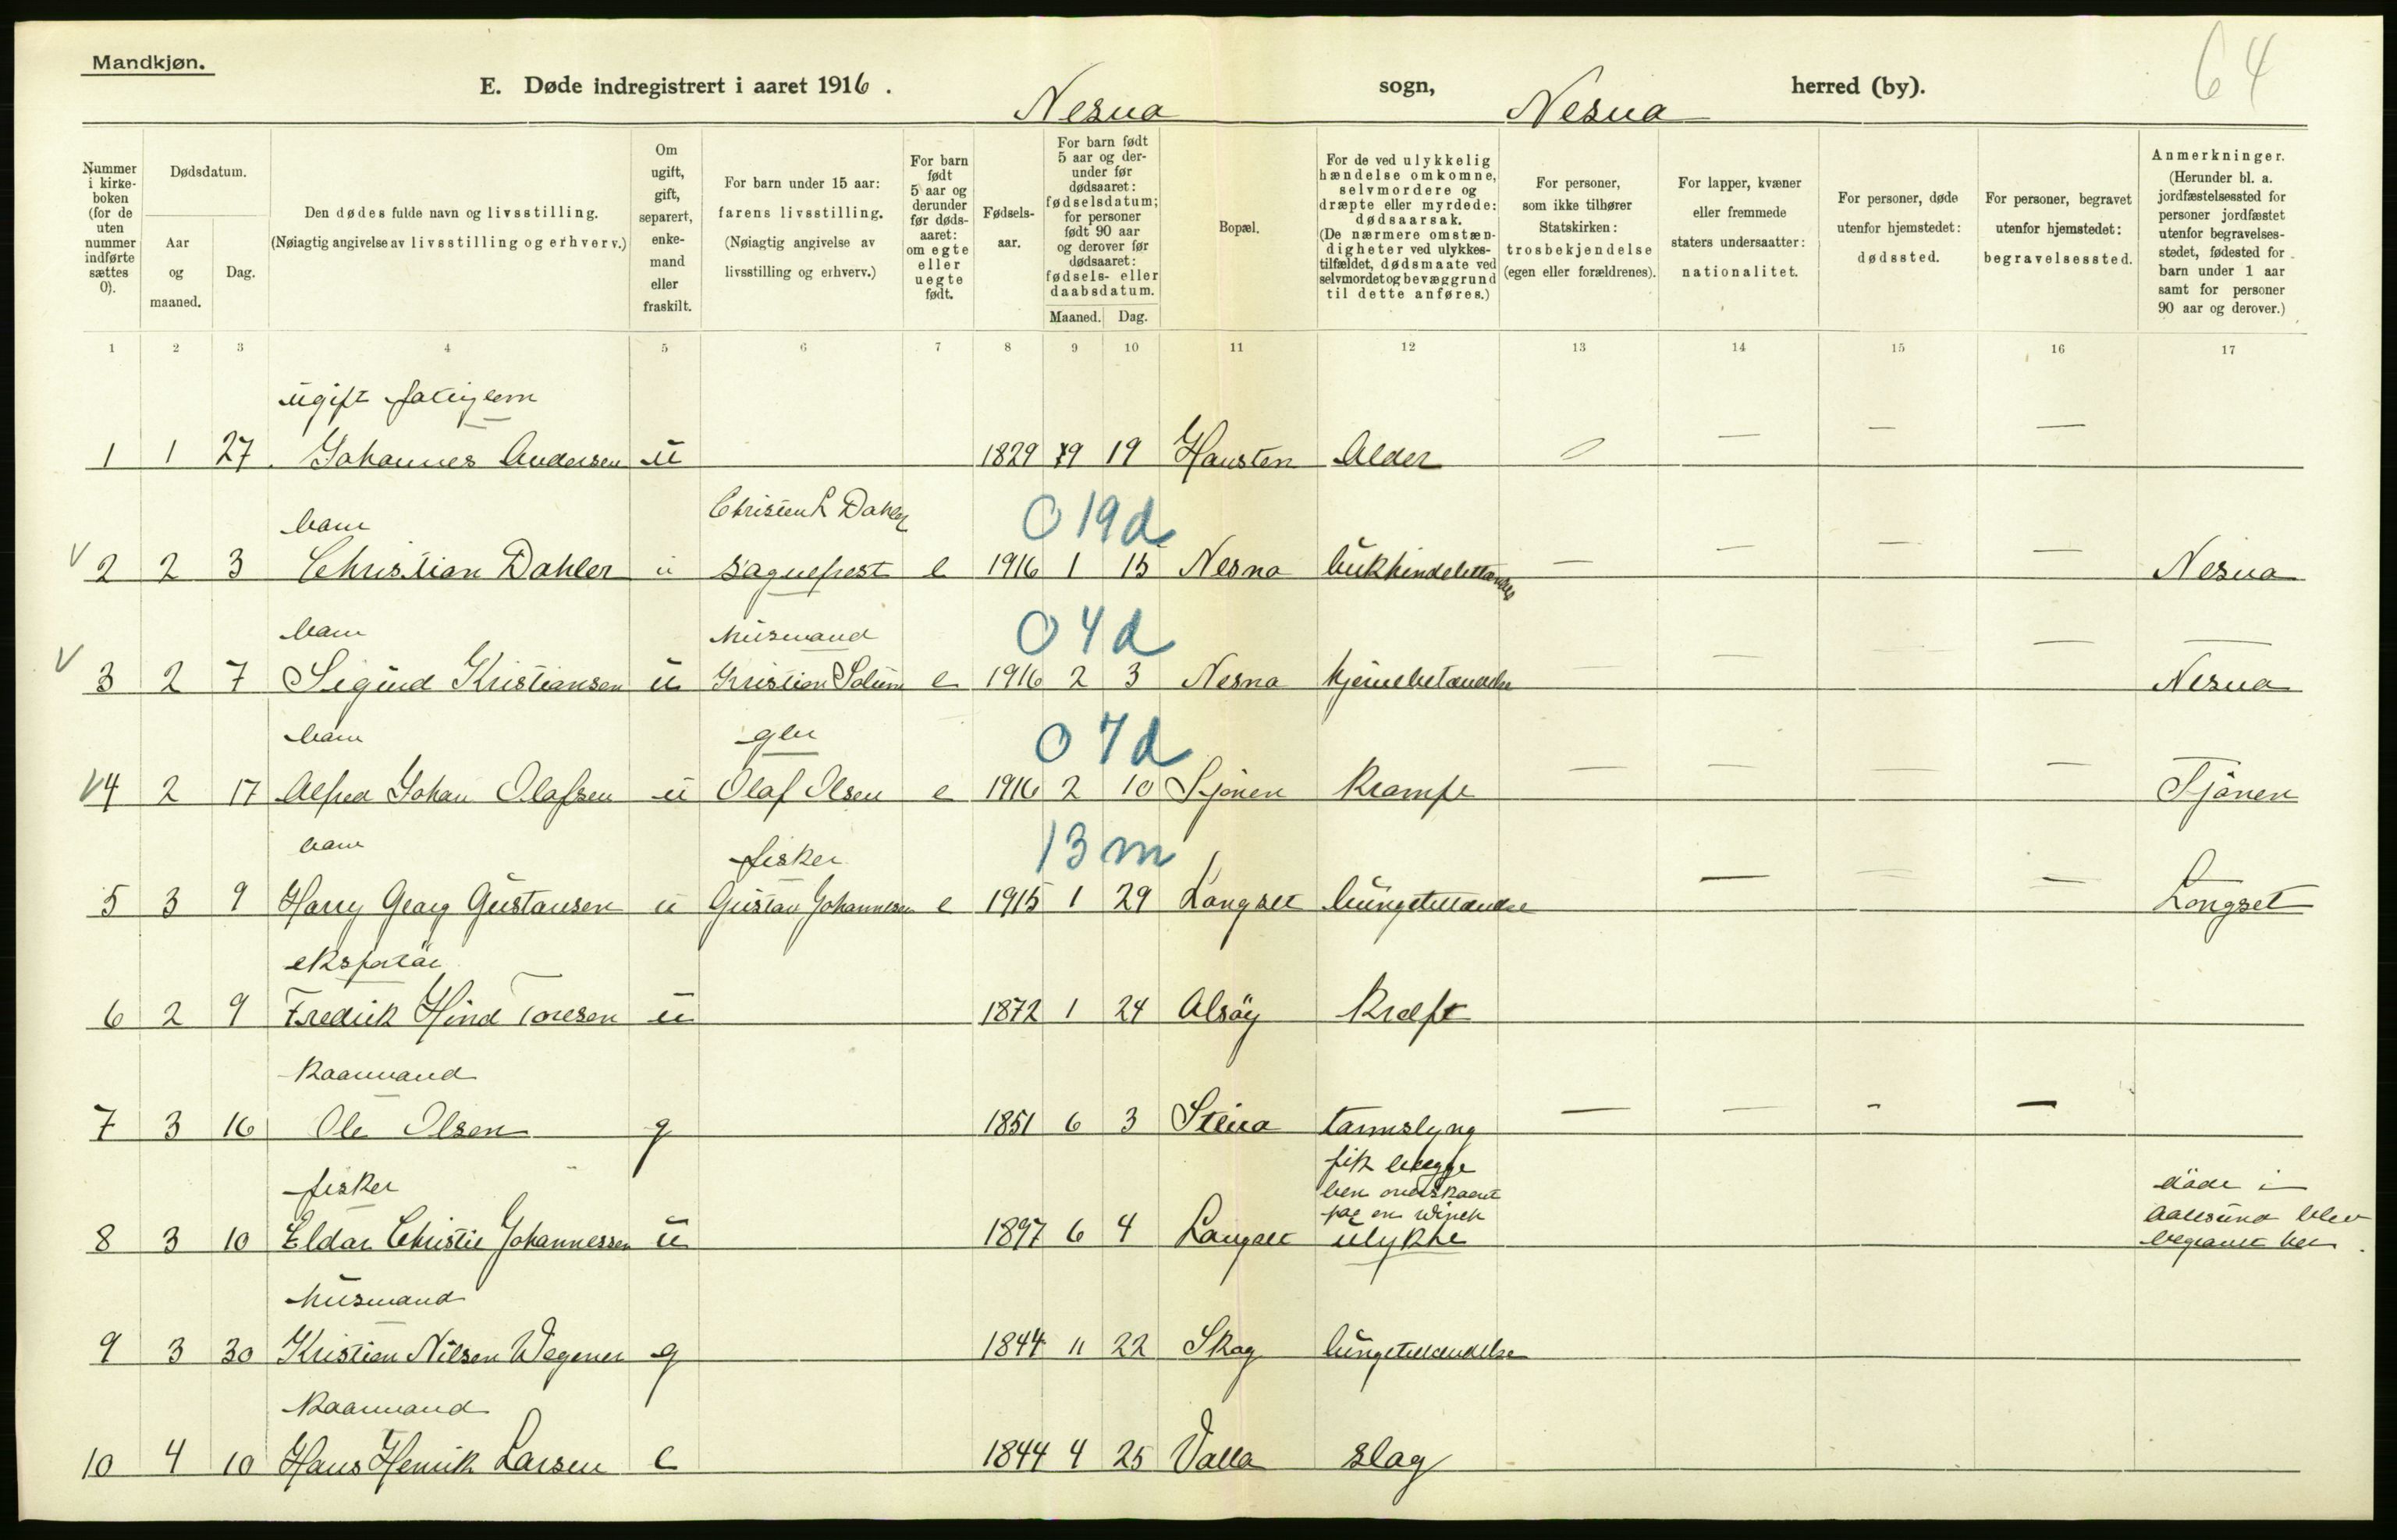 Mandkjøn.
64
E. Døde indregistrert i aaret 1916. Nesna sogn, Nesna herred (by).
Nummer i kirkeboken (for de uten nummer indførte sættes 0).
Dødsdatum.
Aar og maaned.
Dag.
Den dødes fulde navn og livsstilling.
(Nøiagtig angivelse av livsstilling og erhverv.)
Om ugift, gift, separert, enkemand eller fraskilt.
For barn under 15 aar: farens livsstilling.
(Nøiagtig angivelse av livsstilling og erhverv.)
For barn født 5 aar og derunder før dødsaaret: om egte eller uegte født.
Fødselsaar.
For barn født 5 aar og derunder før dødsaaret: fødselsdatum; for personer født 90 aar og derover før dødsaaret: fødsels- eller daabsdatum.
Maaned. Dag.
Bopæl.
For de ved ulykkelig hændelse omkomne, selvmordere og dræpte eller myrdede: dødsaarsak.
(De nærmere omstændigheter ved ulykkestilfældet, dødsmaate ved selvmordet og bevæggrund til dette anføres.)
For personer, som ikke tilhører Statskirken: trosbekjendelse (egen eller forældrenes).
For lapper, kvæner eller fremmede staters undersaatter: nationalitet.
For personer, døde utenfor hjemstedet: dødssted.
For personer, begravet utenfor hjemstedet: begravelsessted.
Anmerkninger.
(Herunder bl. a. jordfæstelsessted for personer jordfæstet utenfor begravelsesstedet, fødested for barn under 1 aar samt for personer 90 aar og derover.)
1 2 3 4 5 6 7 8 9 10 11 12 13 14 15 16 17
ugift fattiglem
1 1 27 Johannes Andersen u 1829 9 19 Hausten Alder 0 — — —
barn Christen L Dahler 0 19 d
V 2 2 3 Christian Dahler u e 1916 1 15 Nesna bukhindebetændelse — — — — Nesna
barn husmand 0 4 d
V 3 2 7 Sigurd Kristiansen u Kristian Solum e 1916 2 3 Nesna hjernebetændelse — — — — Nesna
barn gbr 0 7 d
V 4 2 17 Alfred Johan Olafsen u Olaf Olsen e 1916 2 10 Sjonen Krampe — — — — Sjonen
barn fisker 13 m
5 3 9 Harry Georg Gustavsen u Gustav Johannesen e 1915 1 29 Langset lungebetændelse — — — Langset
ekspeditør
6 2 9 Fredrik Hind Toresen u 1872 1 24 Alsøy Kræft
Kaarmand
7 3 16 Ole Olsen g 1851 6 3 Steira tarmslyng — — - —
fisker fik begge
ben overskaaret døde i
paa en winch Aalesund blev
8 3 10 Eldar Christie Johannessen u 1897 6 4 Langset ulykke begravet her.
husmand
9 3 30 Kristian Nilsen Wegener g 1844 11 22 Skog lungebetændelse
Kaarmand
10 4 10 Hans Henrik Larsen e 1844 4 25 Valla slag